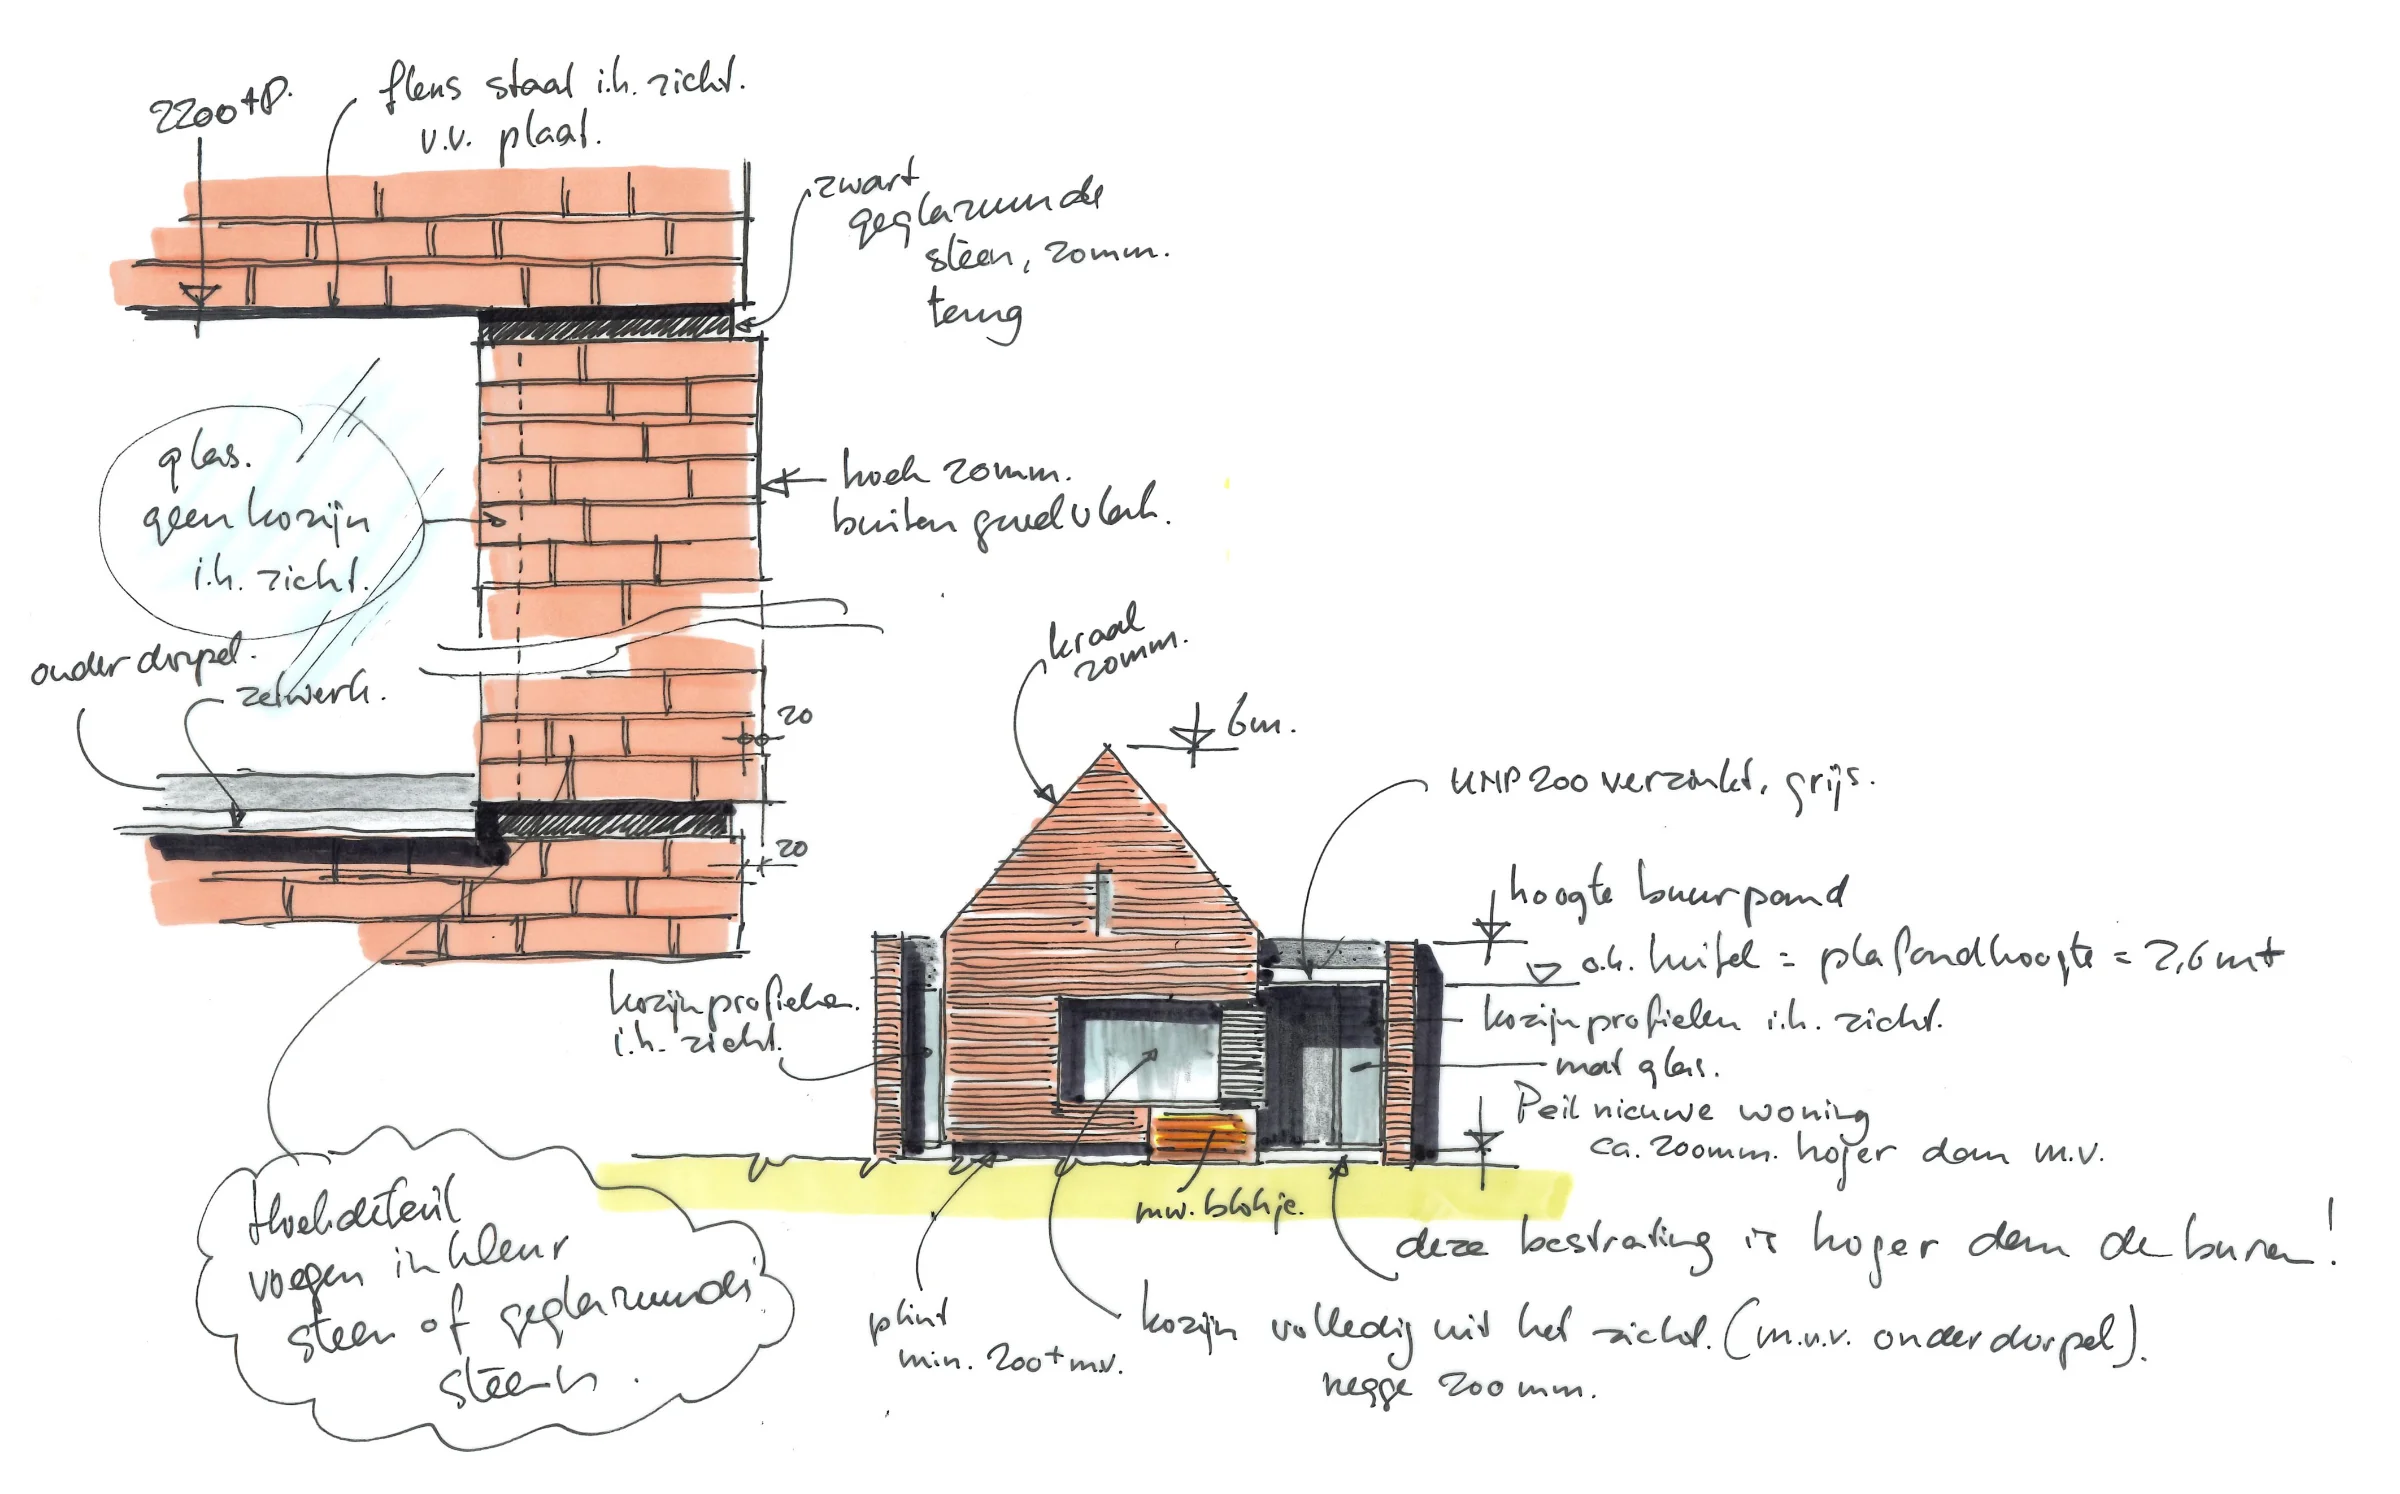 2200+P.
flens staal i.h. zicht.
v.v. plaat.
zwart
geglazuurde
steen, 20mm.
terug
glas.
geen kozijn
i.h. zicht.
hoek 20mm.
buiten gevelvlak.
onderdorpel.
zetwerk.
20
20
kraal
20mm.
6m.
UNP 200 verzinkt, grijs.
hoogte buurpand
o.k. luifel = plafondhoogte = 2,6 mt
kozijnprofielen
i.h. zicht.
kozijnprofielen i.h. zicht.
mat glas.
Peil nieuwe woning
ca. 200mm. hoger dan m.v.
mw. blokje.
deze bestrating is hoger dan de buren!
Hoekdetail
voegen in kleur
steen of geglazuurde
steen.
plint
min. 200+ m.v.
kozijn volledig uit het zicht. (m.u.v. onderdorpel).
negge 200mm.